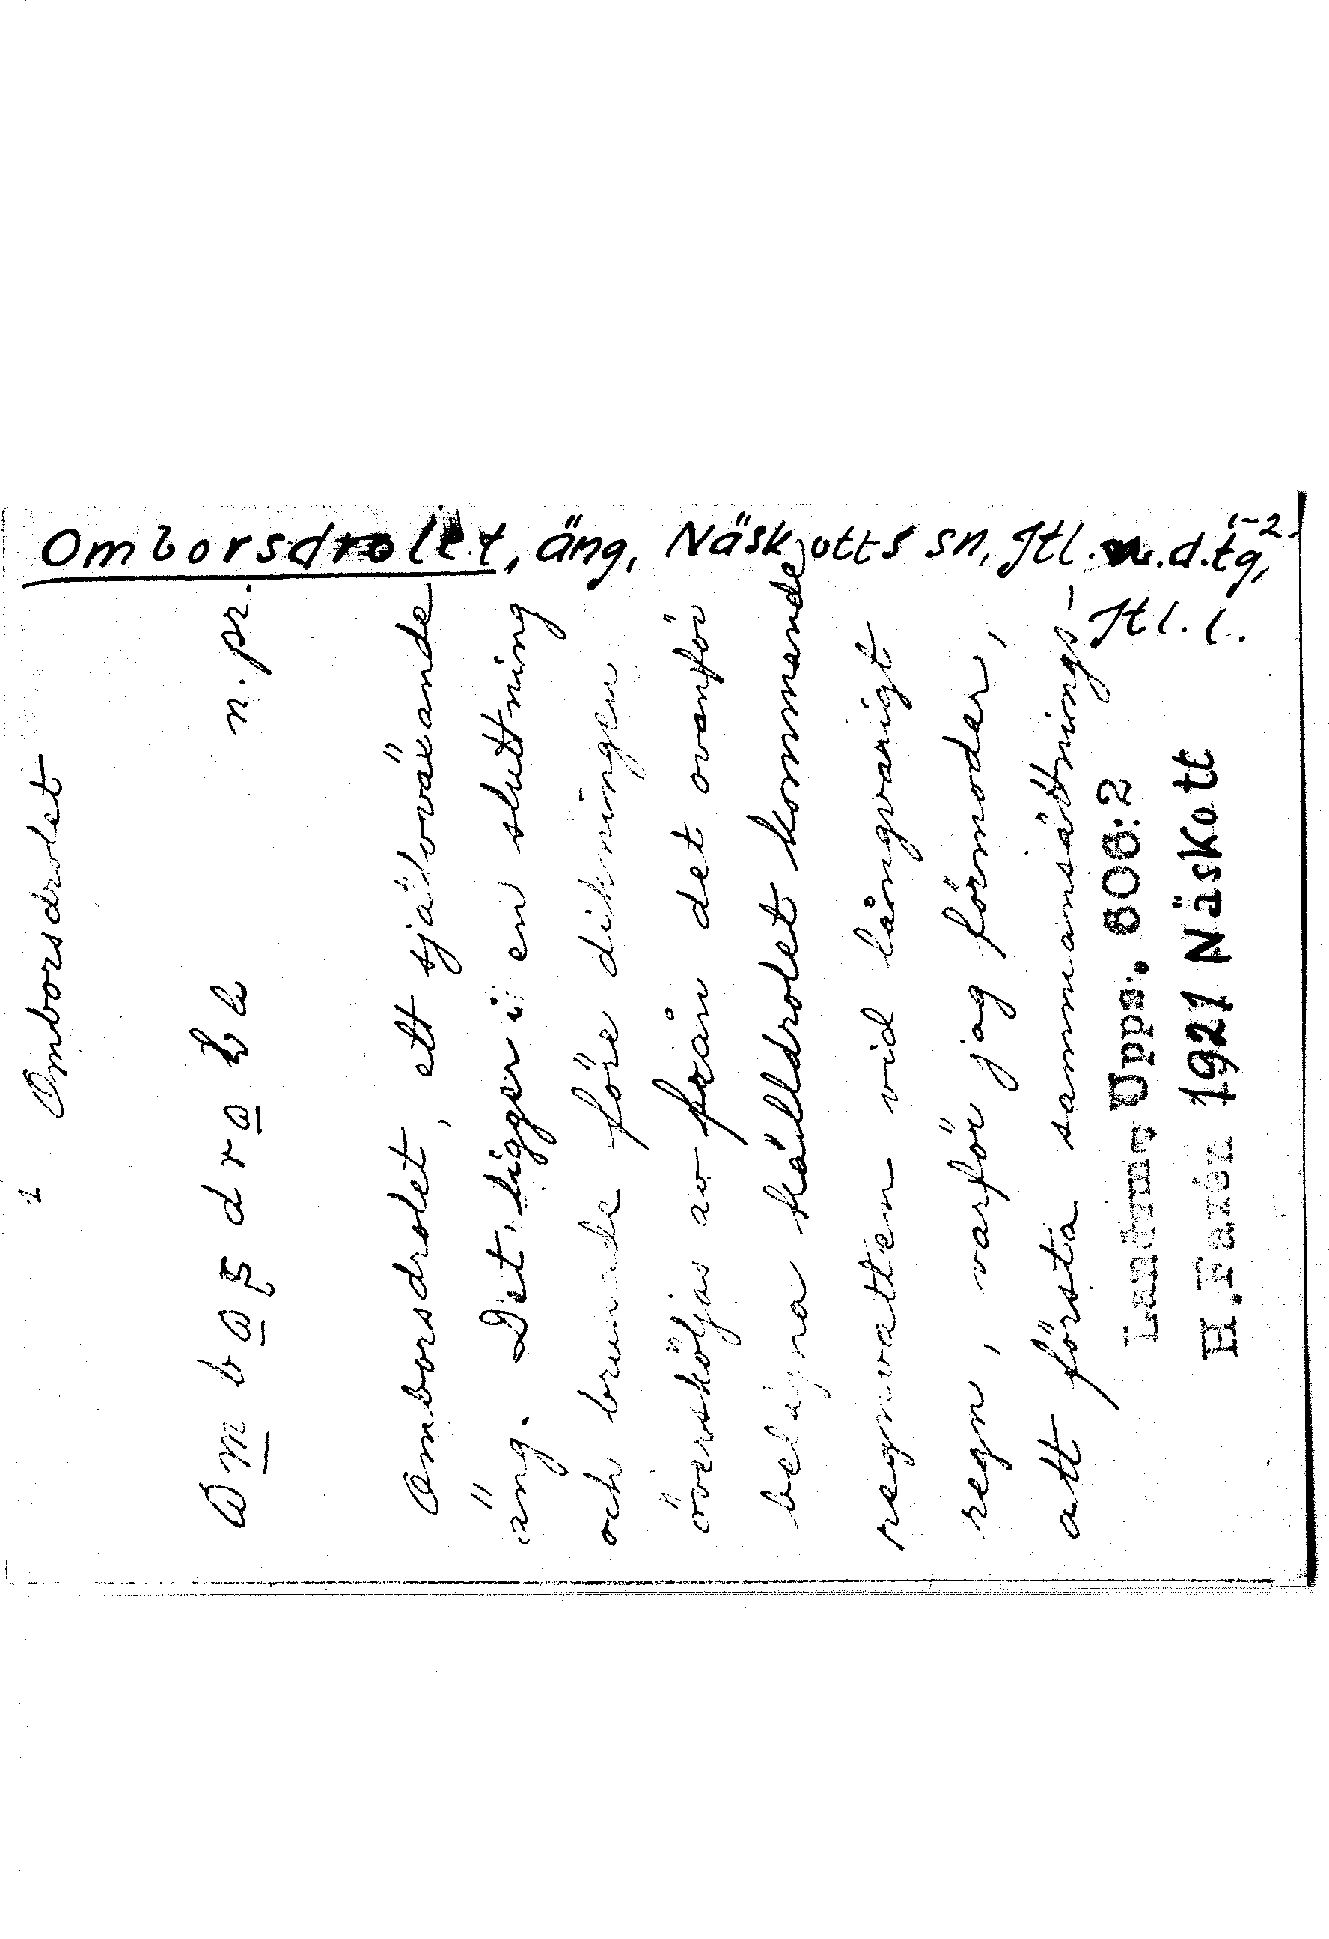 Omborsdrolet, äng, Näskotts sn, Jtl. n.d.tg, 1-2.
Jtl. l.
1 Omborsdrolet
n. pr.
Omborsdrolet, ett självväxande
äng. Det ligger i en sluttning
och brukade före dikningen
översköljas av från det ovanför
belägna källdrolet kommande
regnvatten vid långvarigt
regn, varför jag förmodar,
att första sammansättnings-
Landsm. Upps. 606:2
H. Faxén 1921 Näskott